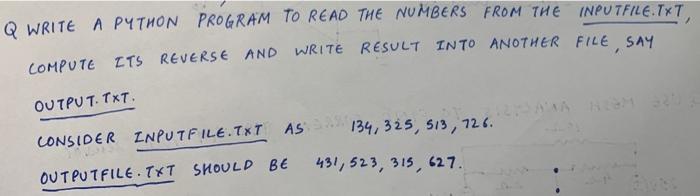 Q WRITE A PYTHON PROGRAM TO READ THE NUMBERS FROM THE INPUTFILE.TXT,
COMPUTE ITS REVERSE AND WRITE RESULT INTO ANOTHER FILE, SAY
OUTPUT.TXT.
CONSIDER INPUTFILE.TXT AS 134, 325, 513, 726.
OUTPUTFILE.TXT SHOULD BE 431, 523, 315, 627.